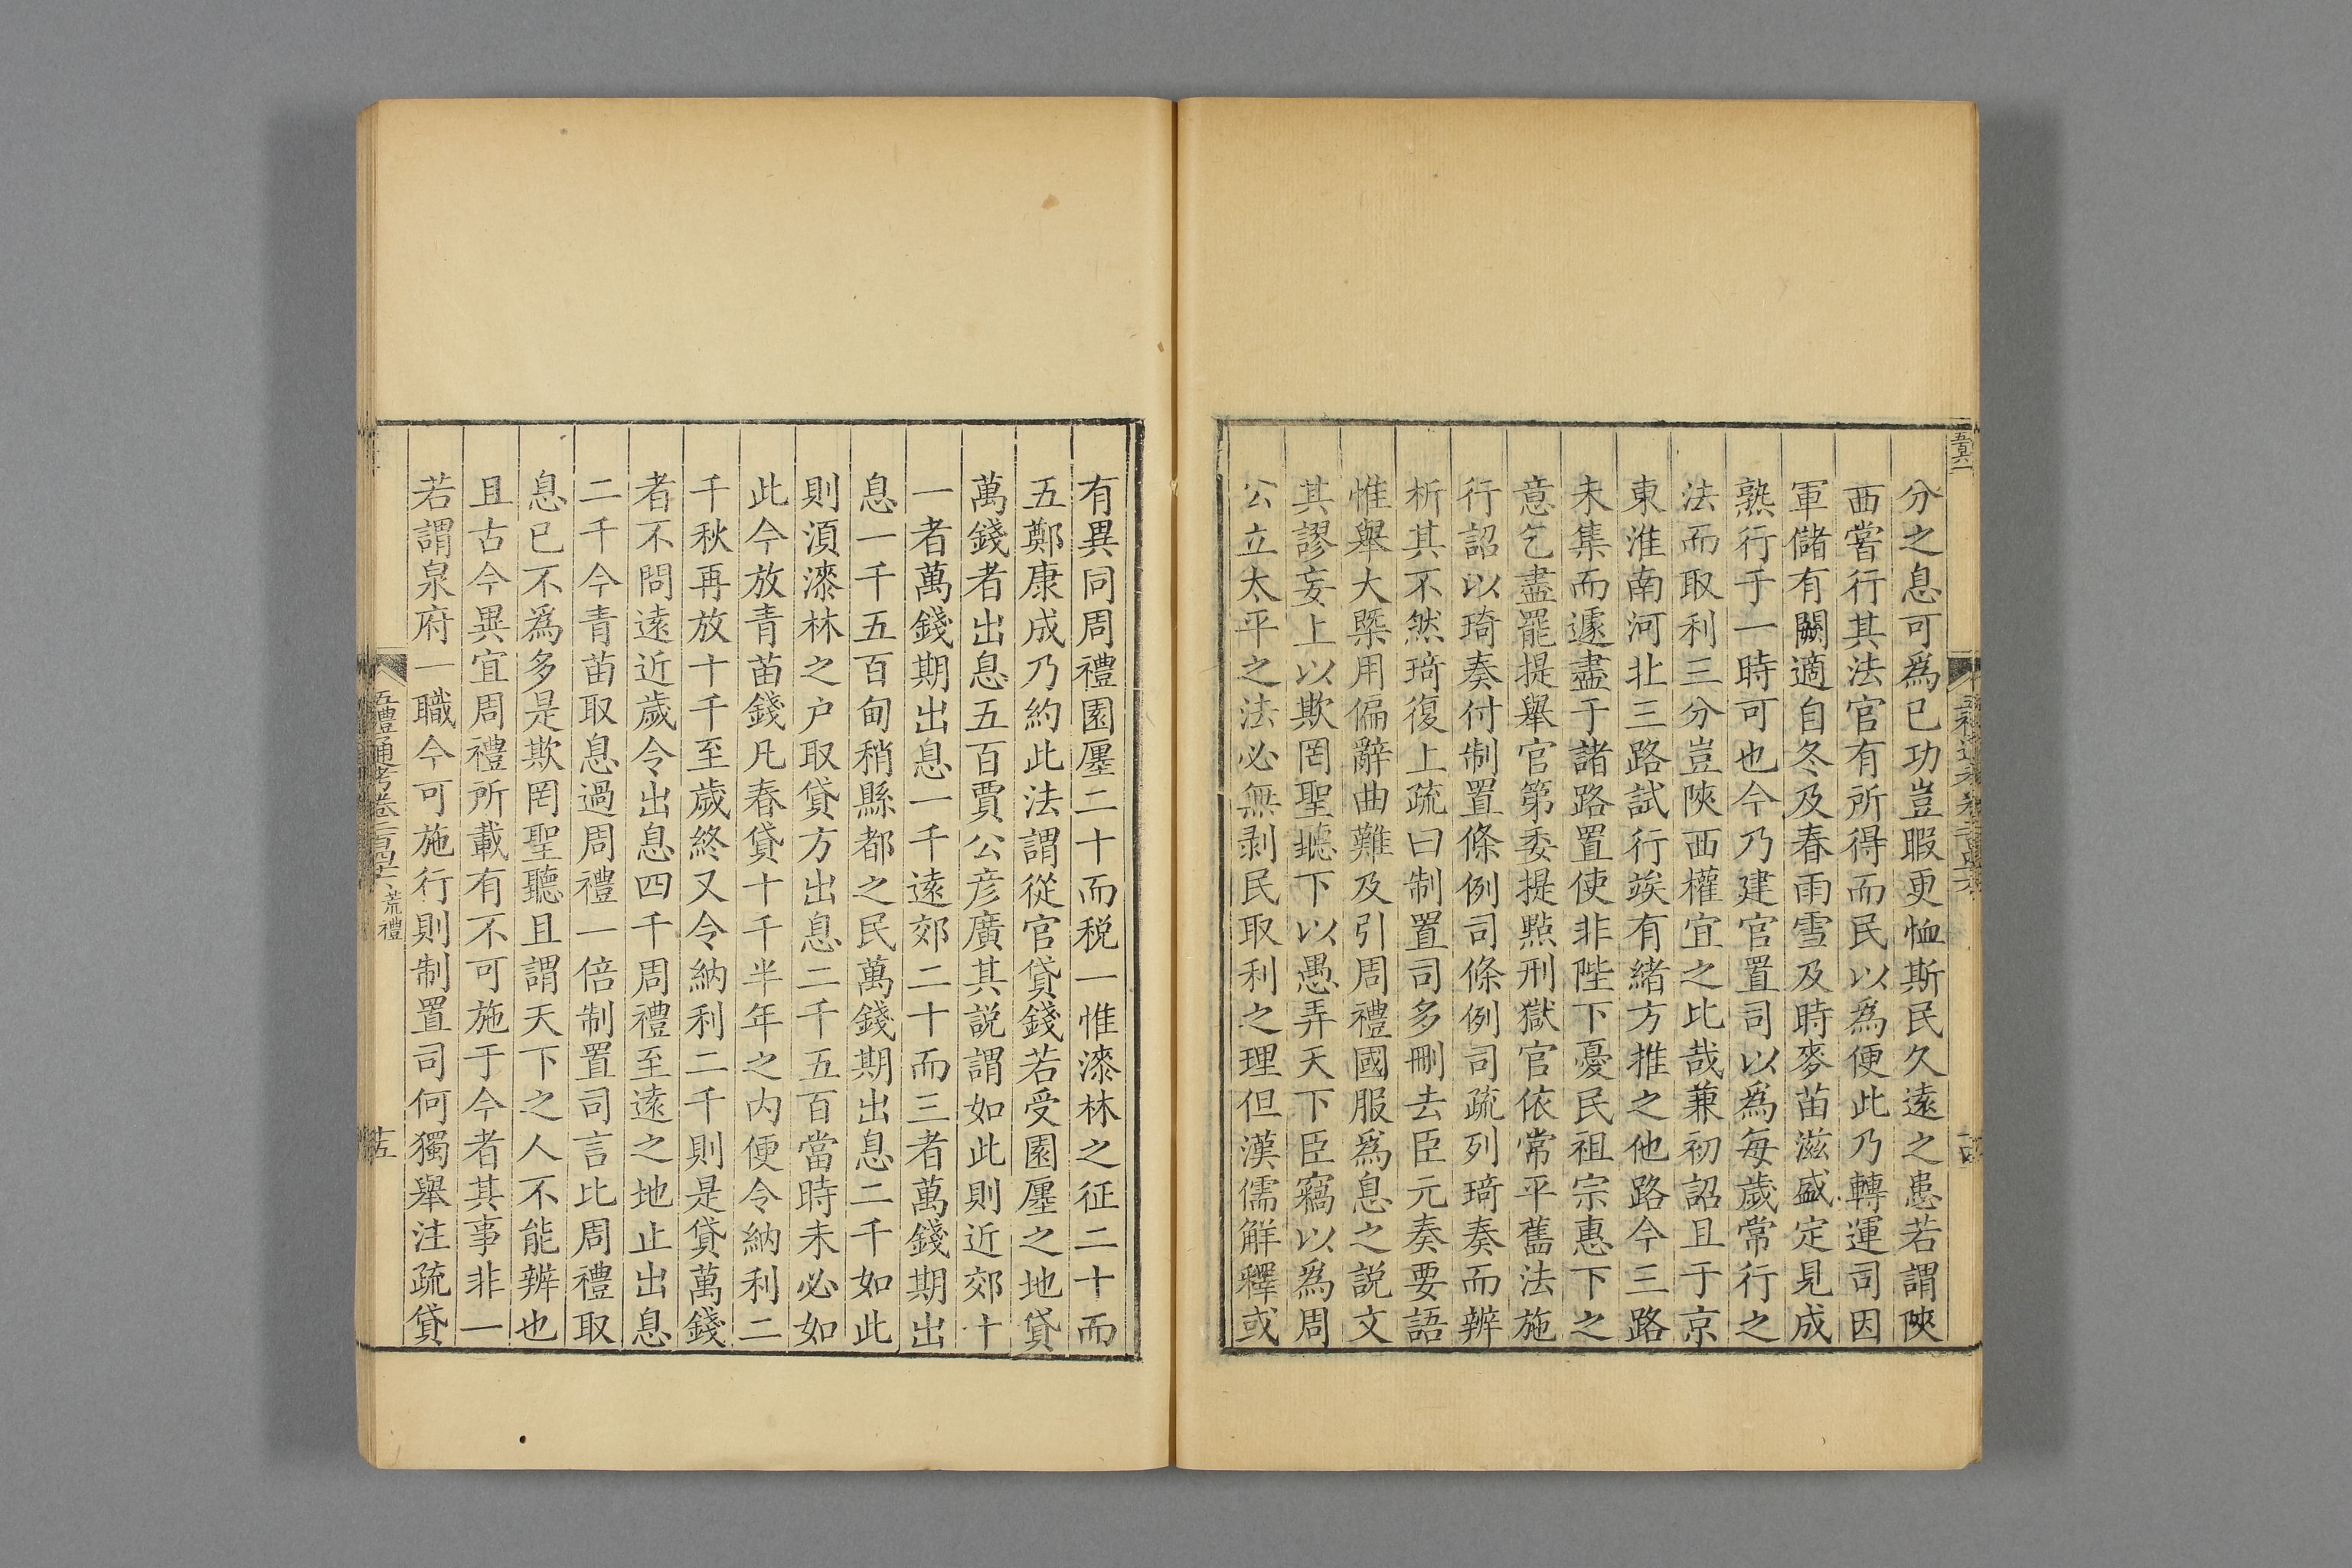 分之息可爲已功豈暇更恤斯民久遠之患若謂陝
西嘗行其法官有所得而民以爲便此乃轉運司因
軍儲有闕適自冬及春雨雪及時麥苗滋盛定見成
熟行于一時可也今乃建官置司以爲每歲常行之
法而取利三分豈陝西權宜之比哉兼初詔且于京
東淮南河北三路試行竢有緒方推之他路今三路
未集而遽盡于諸路置使非陛下憂民祖宗惠下之
意乞盡罷提舉官第委提點刑獄官依常平舊法施
行詔以琦奏付制置條例司條例司疏列琦奏而辨
析其不然琦復上疏曰制置司多刪去臣元奏要語
惟舉大槩用偏辭曲難及引周禮國服爲息之説文
其謬妄上以欺罔聖聽下以愚弄天下臣竊以爲周
公立太平之法必無剥民取利之理但漢儒解釋或
有異同周禮園廛二十而税一惟漆林之征二十而
五鄭康成乃約此法謂從官貸錢若受園廛之地貸
萬錢者出息五百賈公彦廣其説謂如此則近郊十
一者萬錢期出息一千遠郊二十而三者萬錢期出
息一千五百甸稍縣都之民萬錢期出息二千如此
則湏漆林之户取貸方出息二千五百當時未必如
此今放青苗錢凡春貸十千半年之内便令納利二
千秋再放十千至歲終又令納利二千則是貸萬錢
者不問遠近歲令出息四千周禮至遠之地止出息
二千今青苗取息過周禮一倍制置司言比周禮取
息已不爲多是欺罔聖聽且謂天下之人不能辨也
且古今異宜周禮所載有不可施于今者其事非一
若謂泉府一職今可施行則制置司何獨舉注疏貸
五禮通考卷二百四十六 荒禮
十五